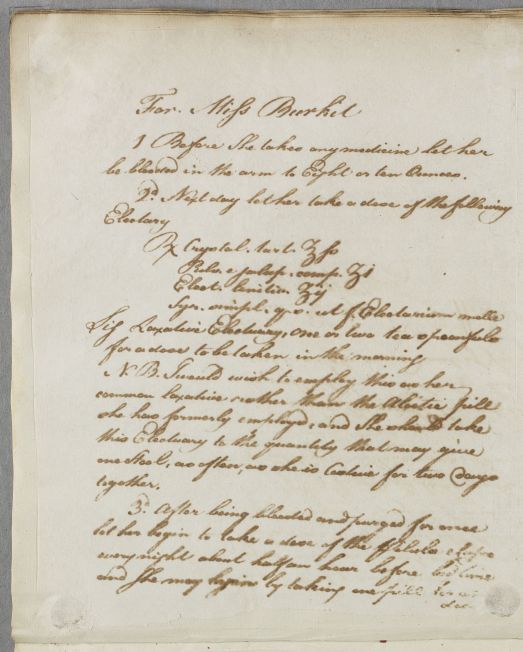 For. Miss Burkit
1 Before She takes any medicine let her
be blooded in the arm to Eight or ten Ounces.
2d. Next day let her take a dose of the following
Electuary
℞ Crystal. tart. ℥ſs
Pulv. e jalap. comp. ℥i
Elect. lenitiv. ℥ij
Syr. simpl. q. s. ut f. Electarium molle
Sig Laxative Electuary, one or two tea spoonfuls
for a dose to be taken in the morning
N. B. I would wish to employ this as her
common laxative rather than the Aloetic pill
she has formerly employd, and She should take
this Electuary to the quantity that may give
one Stool, as often, as she is Costive for two days
together.
3d. After being blooded and purged for once
let her begin to take a dose of the
every night about half an hour before bed time
and She may begin by taking one pill for a
dose